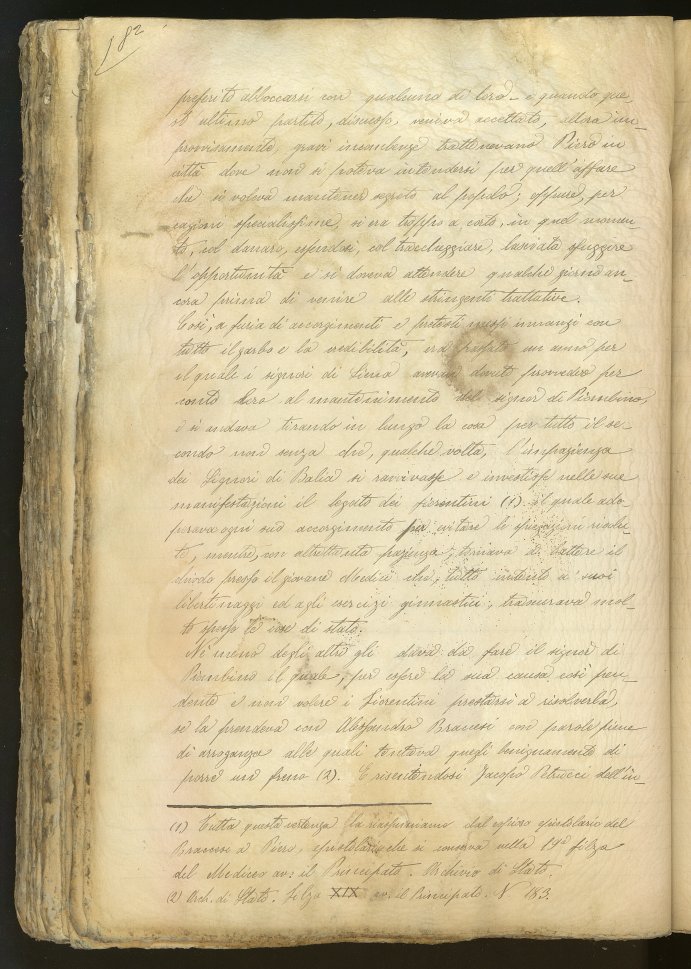 182
preferito abboccarsi con qualcuno di loro - e quando que-
st'ultimo partito, discusso, veniva accettato, allora im-
provvisamente, gravi incombenze trattenevano Piero in
città dove non si poteva intendersi per quell'affare
che si voleva mantener segreto al popolo; oppure, per
cagioni specialissime, si era troppo a corto, in quel momen-
to, col danaro, essendosi, col tracheggiare, lasciata sfuggire
l'opportunità e si doveva attendere qualche giorno an-
cora prima di venire alle stringenti trattative.
Così, a furia di accorgimenti e pretesti messi innanzi con
tutto il garbo e la credibilità, era passato un anno per
il quale i signori di Siena avevan dovuto provvedere per
conto loro al mantenimento del signor di Piombino,
e si andava tirando in lungo la cosa per tutto il se-
condo non senza che, qualche volta, l'impazienza
dei Signori di Balìa si ravvivasse e investisse nelle sue
manifestazioni il legato dei fiorentini (1) il quale ado-
perava ogni suo accorgimento per evitare le spiegazioni risolu-
te, mentre, con altrettanta pazienza, tornava a battere il
chiodo presso il giovane Medici che, tutto intento a' suoi
libertinaggi ed agli esercizi ginnastici, trascurava mol-
to spesso le cose di stato.
Nè meno degli altri gli dava da fare il signor di
Piombino il quale, per essere la sua causa così pen-
dente e non volere i Fiorentini prestarsi a risolverla,
se la prendeva con Alessandro Bracesi con parole piene
di arroganza alle quali tentava quegli benignamente di
porre un freno (2). E risentendosi Jacopo Petrucci dell'in-
(1) Tutta questa vertenza la riassumiamo dal copioso epistolario del
Bracese a Piero, epistolario che si conserva nella 19ª filza
del Mediceo av: il Principato. Archivio di Stato.
(2) Arch. di Stato. Filza XIX av. il Principato. N° 183.